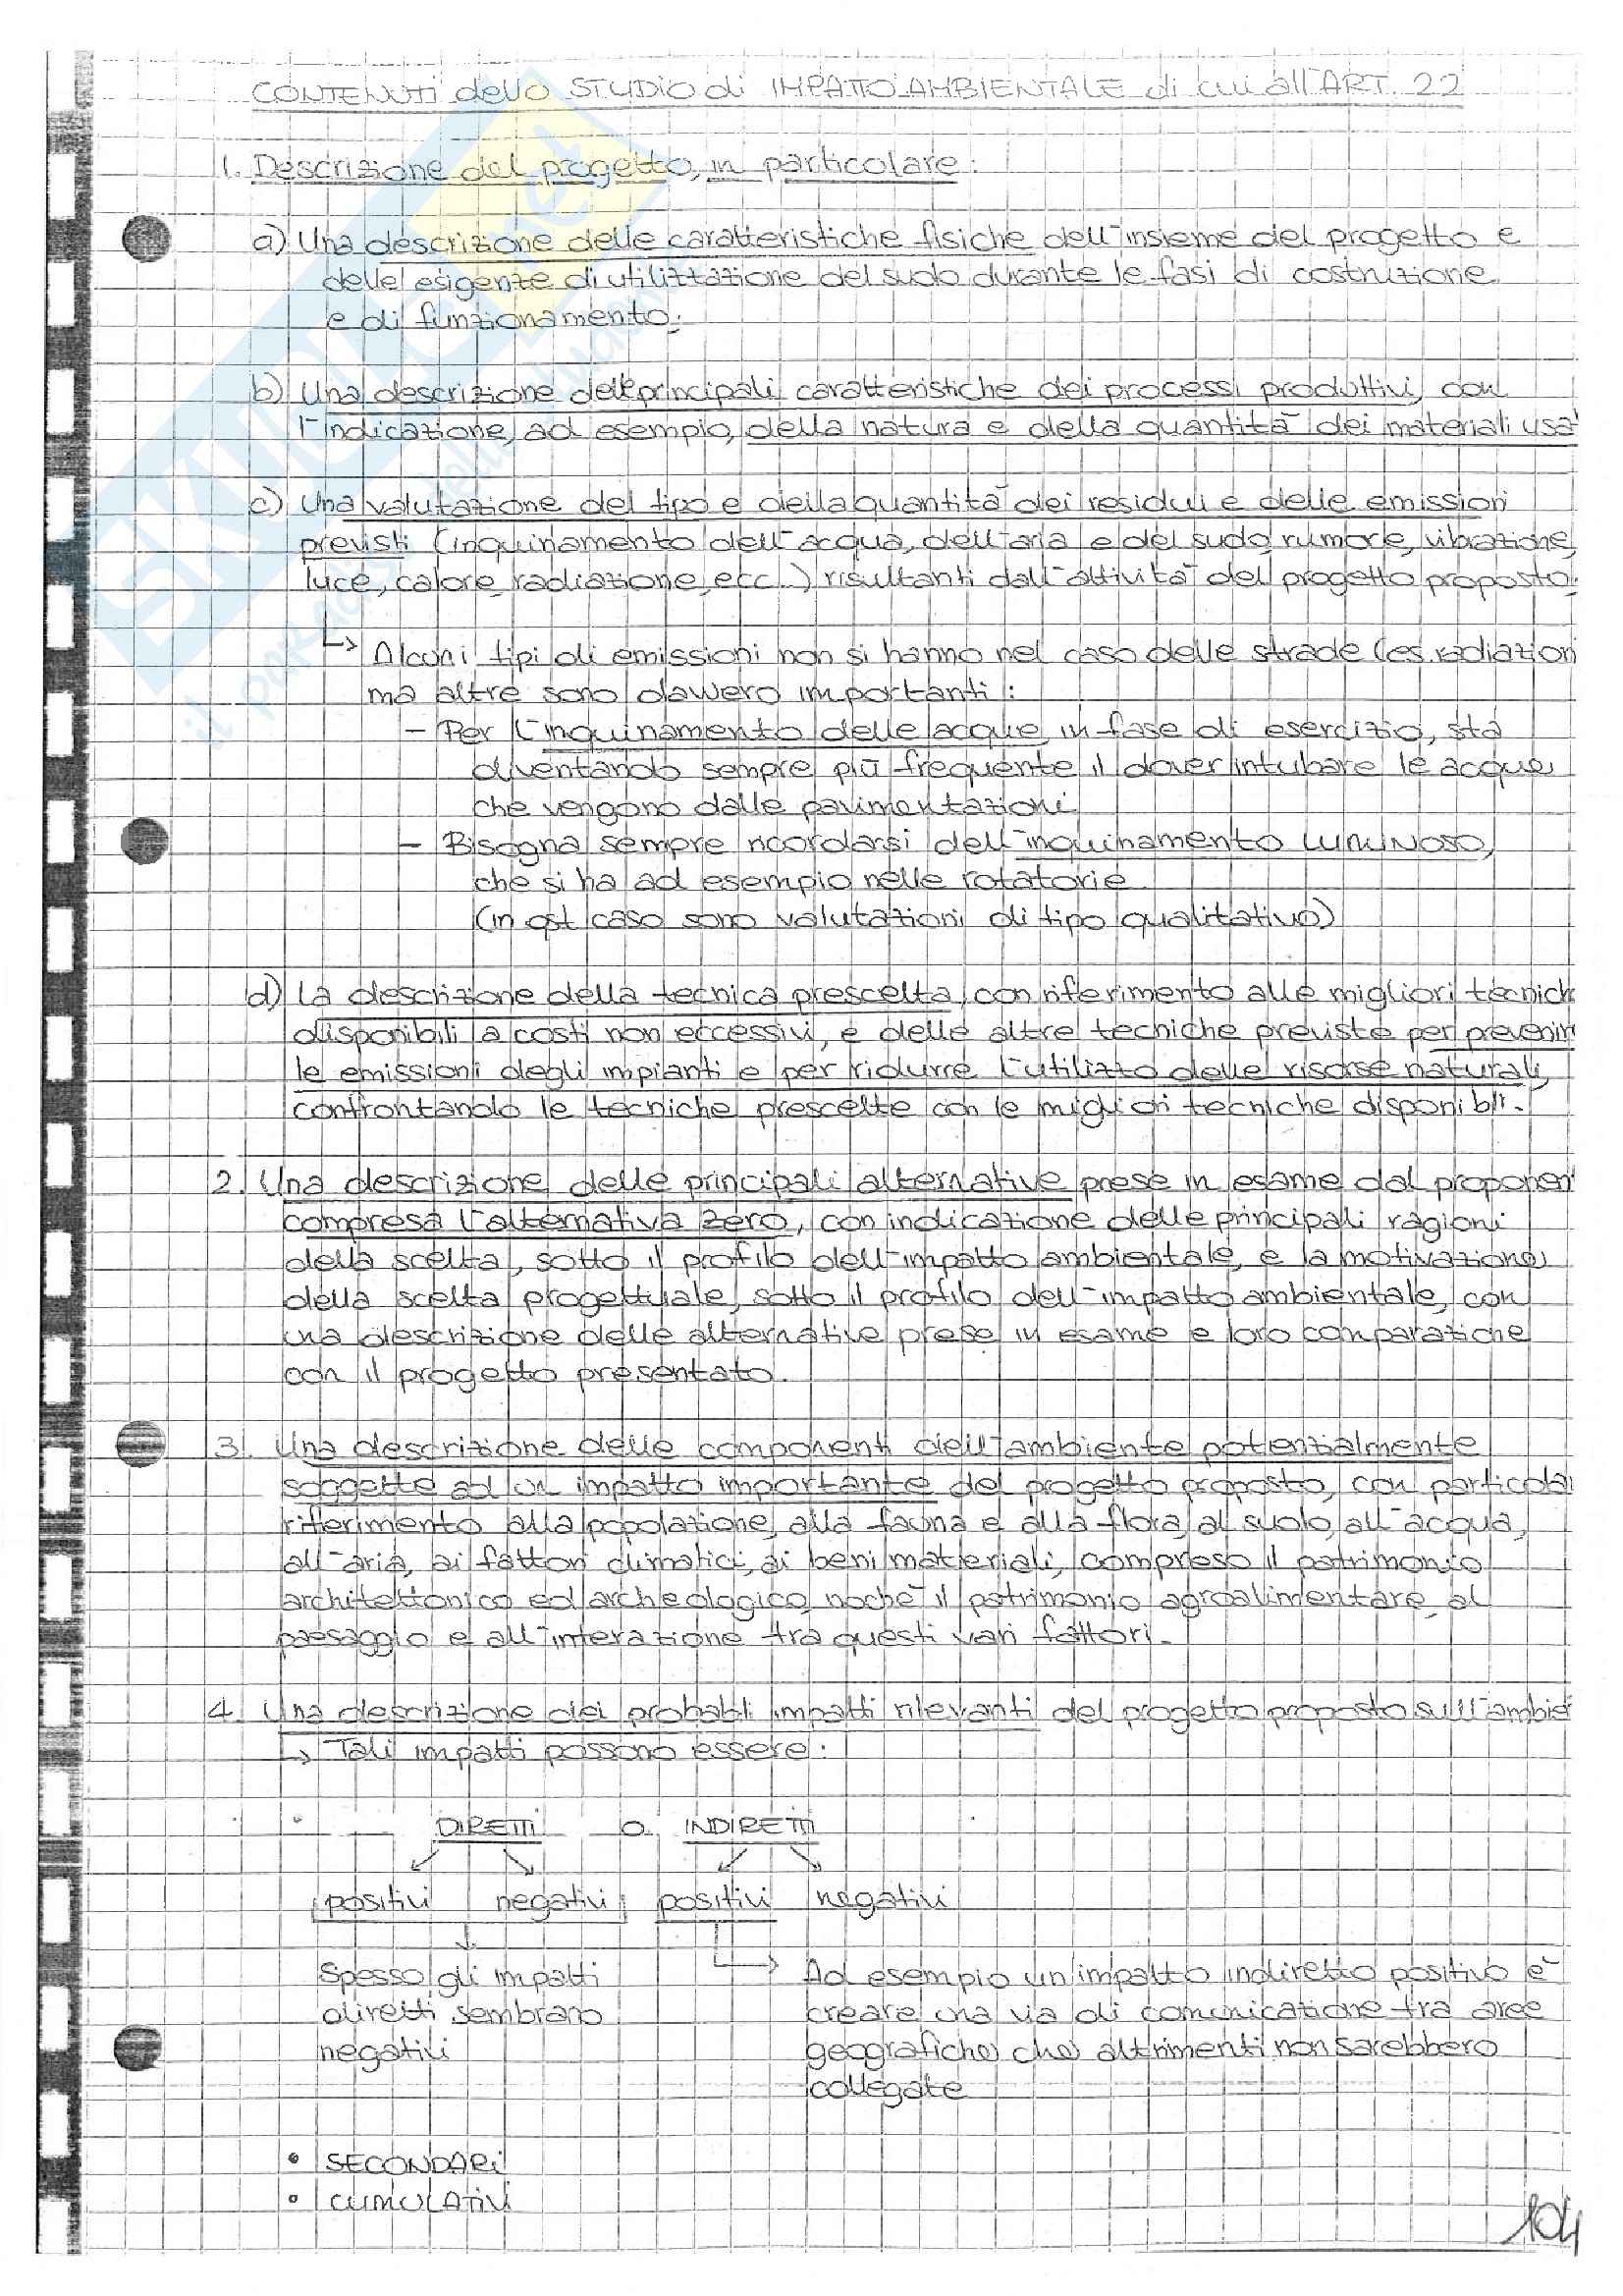 CONTENUTI dello STUDIO di IMPATTO AMBIENTALE di cui all'ART. 22
1. Descrizione del progetto, in particolare:
a) Una descrizione delle caratteristiche fisiche dell'insieme del progetto e
delle esigenze di utilizzazione del suolo durante le fasi di costruzione
e di funzionamento;
b) Una descrizione delle principali caratteristiche dei processi produttivi, con
l'indicazione, ad esempio, della natura e della quantità dei materiali usa
c) Una valutazione del tipo e della quantità dei residui e delle emissioni
previsti (inquinamento dell'acqua, dell'aria e del suolo, rumore, vibrazione,
luce, calore, radiazione, ecc...) risultanti dall'attività del progetto proposto;
↳ Alcuni tipi di emissioni non si hanno nel caso delle strade (es. radiazion
ma altre sono davvero importanti:
- Per l'inquinamento delle acque, in fase di esercizio, sta
diventando sempre più frequente il dover intubare le acque
che vengono dalle pavimentazioni
- Bisogna sempre ricordarsi dell'inquinamento LUMINOSO,
che si ha ad esempio nelle rotatorie
(in qst caso sono valutazioni di tipo qualitativo)
d) La descrizione della tecnica prescelta, con riferimento alle migliori tecnich
disponibili a costi non eccessivi, e delle altre tecniche previste per prevenir
le emissioni degli impianti e per ridurre l'utilizzo delle risorse naturali,
confrontando le tecniche prescelte con le migliori tecniche disponibli.
2. Una descrizione delle principali alternative prese in esame dal proponen
compresa l'alternativa zero, con indicazione delle principali ragioni
della scelta, sotto il profilo dell'impatto ambientale, e la motivazione
della scelta progettuale, sotto il profilo dell'impatto ambientale, con
una descrizione delle alternative prese in esame e loro comparatiche
con il progetto presentato.
3. Una descrizione delle componenti dell'ambiente potenzialmente
soggette ad un impatto importante del progetto proposto, con particola
riferimento alla popolazione, alla fauna e alla flora, al suolo, all'acqua,
all'aria, ai fattori climatici, ai beni materiali, compreso il patrimonio
architettonico ed archeologico, nochè il patrimonio agroalimentare, al
paesaggio e all'interazione tra questi vari fattori.
4. Una descrizione dei probabli impatti rilevanti del progetto proposto sull'ambie
↳ Tali impatti possono essere:
• DIRETTI o INDIRETTI
positivi negativi positivi negativi
Spesso gli impatti
diretti sembrano
negativi
Ad esempio un impatto indiretto positivo è
creare una via di comunicazione tra aree
geografiche che altrimenti non sarebbero
collegate
• SECONDARI
• CUMULATIVI
104